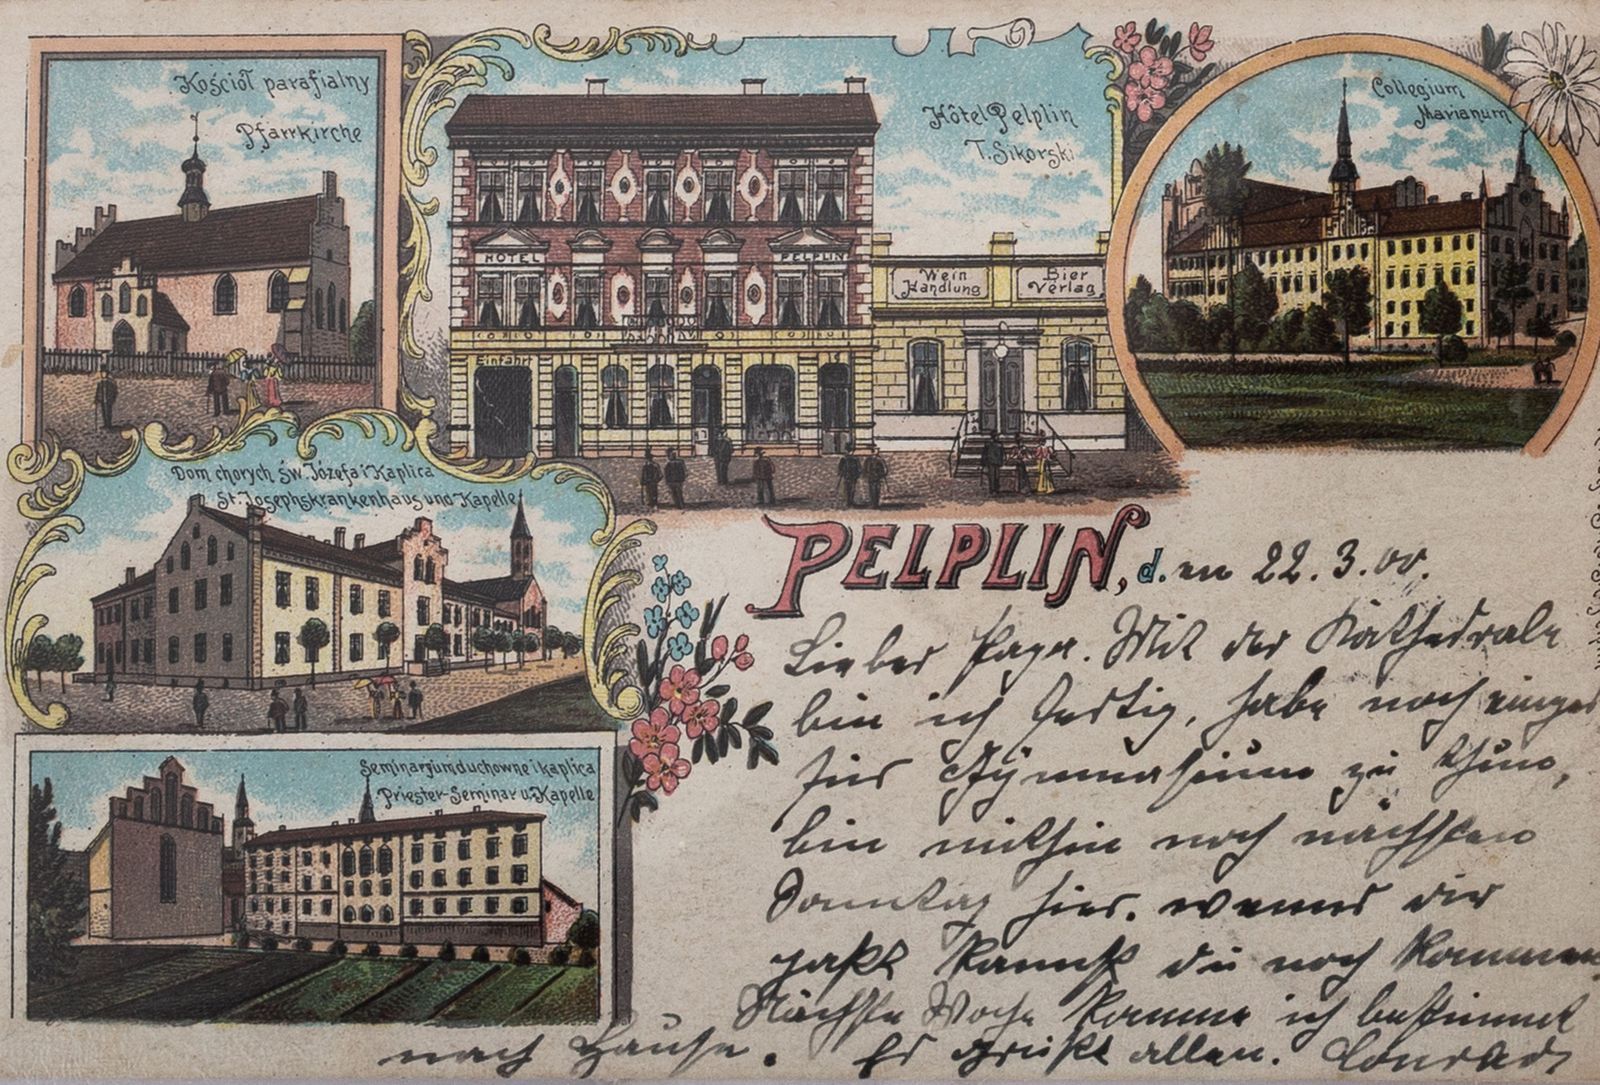 Kościoł parafialny
Pfarrkirche
Hôtel Pelplin
T. Sikorski
Collegium
Marianum
HOTEL PELPLIN
Wein
Handlung
Bier
Verlag
Einfahrt
Dom chorych św. Józefa i Kaplica
St. Josephskrankenhaus und Kapelle
Seminaryum duchowne i kaplica
Priester-Seminar u. Kapelle
PELPLIN, d. en 22. 3. 00.
Lieber Papa. Mit der Kathedrale
bin ich fertig, habe noch einiges
fürs Gymnasium zu thun,
bin mithin noch nächsten
Sonntag hier. wenns dir
paßt kannst du noch kommen
Nächste Woche komme ich bestimmt
nach Hause. Es grüßt allen. Conrad